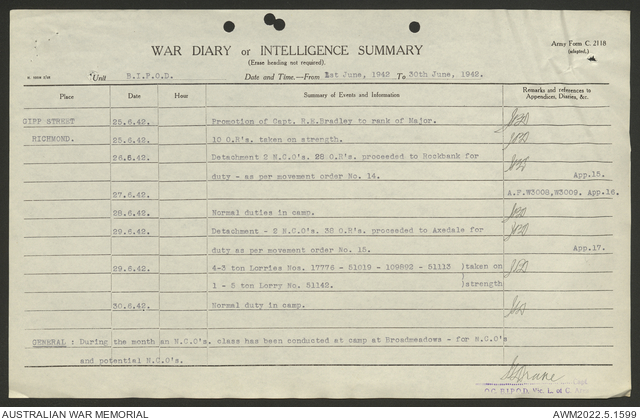 Army Form C. 2118
(adapted.)
WAR DIARY or INTELLIGENCE SUMMARY
(Erase heading not required).
Unit B.I.P.O.D. Date and Time.—From 1st June, 1942 To 30th June, 1942.
Place Date Hour Summary of Events and Information Remarks and references to Appendices, Diaries, &c.
GIPP STREET 25.6.42. Promotion of Capt. R.H.Bradley to rank of Major.
RICHMOND. 25.6.42. 10 O.R's. taken on strength.
26.6.42. Detachment 2 N.C.O's. 28 O.R's. proceeded to Rockbank for
duty - as per movement order No. 14. App.15.
27.6.42. A.F.W3008,W3009. App.16.
28.6.42. Normal duties in camp.
29.6.42. Detachment - 2 N.C.O's. 38 O.R's. proceeded to Axedale for
duty as per movement order No. 15. App.17.
29.6.42. 4-3 ton Lorries Nos. 17776 - 51019 - 109892 - 51113 )taken on
1 - 5 ton Lorry No. 51142. )strength
30.6.42. Normal duty in camp.
GENERAL : During the month an N.C.O's. class has been conducted at camp at Broadmeadows - for N.C.O's
and potential N.C.O's.
O.C. B.I.P.O.D. Vic. L. of C.
AUSTRALIAN WAR MEMORIAL AWM2022.5.1599